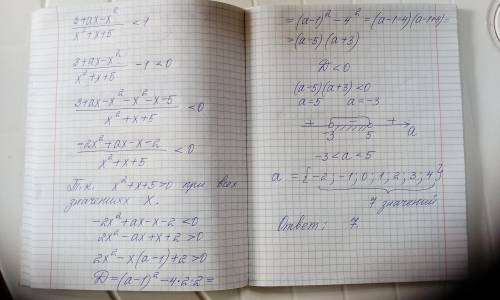 3+ax-x² / x²+x+5 < 1
3+ax-x² / x²+x+5 - 1 < 0
3+ax-x²-x²-x-5 / x²+x+5 < 0
-2x²+ax-x-2 / x²+x+5 < 0
Т.к. x²+x+5>0 при всех
значениях x.
-2x²+ax-x-2<0
2x²-ax+x+2>0
2x²-x(a-1)+2>0
D=(a-1)²-4·2·2=
=(a-1)²-4²=(a-1-4)(a-1+4)=
=(a-5)(a+3)
D<0
(a-5)(a+3)<0
a=5 a=-3
+ - + a
-3 5
-3<a<5
a={-2;-1;0;1;2;3;4}
7 значений
Ответ: 7.